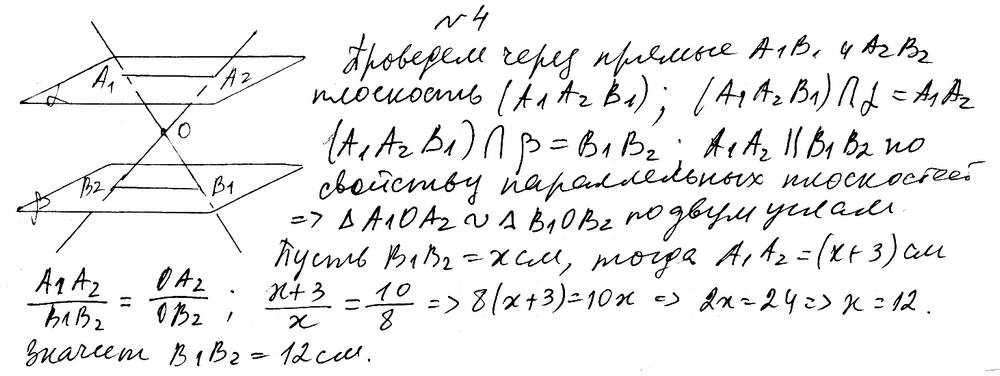 №4
Проведем через прямые A1B1 и A2B2
плоскость (A1A2B1); (A1A2B1)∩α=A1A2
(A1A2B1)∩β=B1B2; A1A2||B1B2 по
свойству параллельных плоскостей
=> ΔA1OA2 ~ ΔB1OB2 по двум углам.
Пусть B1B2=x см, тогда A1A2=(x+3) см
A1A2/B1B2 = OA2/OB2; (x+3)/x = 10/8 => 8(x+3)=10x => 2x=24 => x=12.
Значит B1B2=12 см.
A1
A2
α
O
B2
B1
β